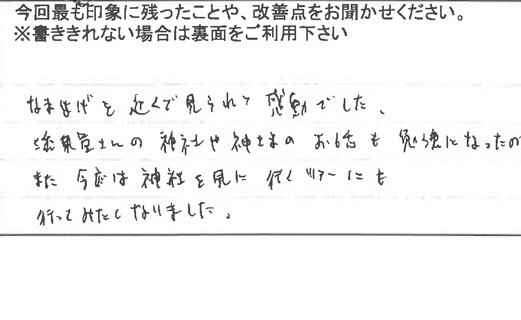 今回最も印象に残ったことや、改善点をお聞かせください。
※書ききれない場合は裏面をご利用下さい
なまはげを近くで見られて感動でした。
添乗員さんの神社や神さまのお話も勉強になったの
また今度は神社を見に行くツアーにも
行ってみたくなりました。